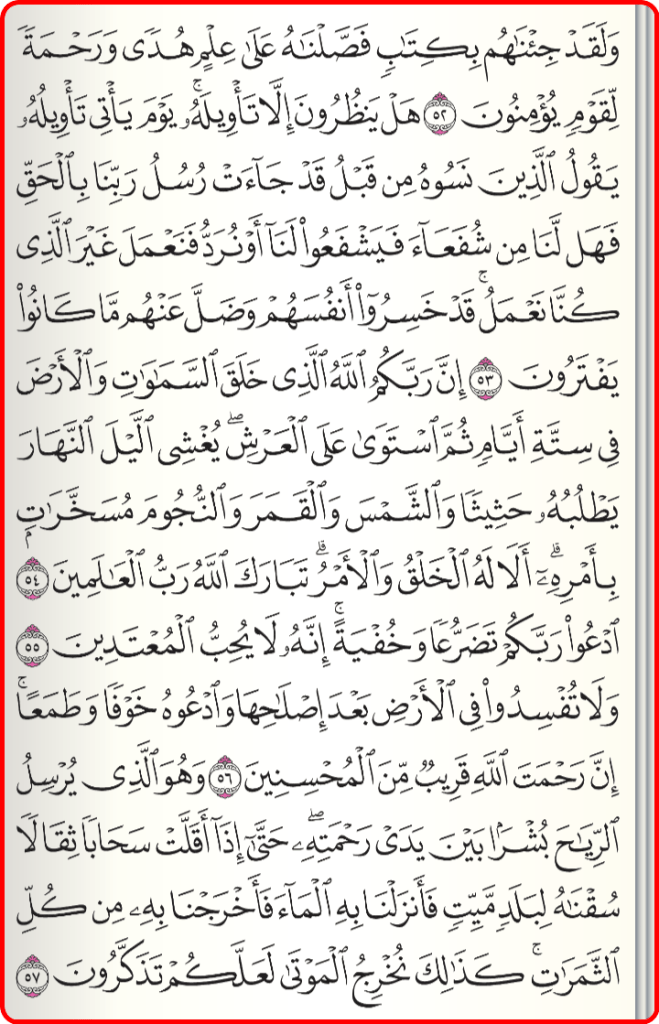 وَلَقَدْ جِئْنَٰهُم بِكِتَٰبٍ فَصَّلْنَٰهُ عَلَىٰ عِلْمٍ هُدًى وَرَحْمَةً
لِّقَوْمٍ يُؤْمِنُونَ ٥٢ هَلْ يَنظُرُونَ إِلَّا تَأْوِيلَهُۥ ۚ يَوْمَ يَأْتِى تَأْوِيلُهُۥ
يَقُولُ ٱلَّذِينَ نَسُوهُ مِن قَبْلُ قَدْ جَآءَتْ رُسُلُ رَبِّنَا بِٱلْحَقِّ
فَهَل لَّنَا مِن شُفَعَآءَ فَيَشْفَعُوا۟ لَنَآ أَوْ نُرَدُّ فَنَعْمَلَ غَيْرَ ٱلَّذِى
كُنَّا نَعْمَلُ ۚ قَدْ خَسِرُوٓا۟ أَنفُسَهُمْ وَضَلَّ عَنْهُم مَّا كَانُوا۟
يَفْتَرُونَ ٥٣ إِنَّ رَبَّكُمُ ٱللَّهُ ٱلَّذِى خَلَقَ ٱلسَّمَٰوَٰتِ وَٱلْأَرْضَ
فِى سِتَّةِ أَيَّامٍ ثُمَّ ٱسْتَوَىٰ عَلَى ٱلْعَرْشِ ۖ يُغْشِى ٱلَّيْلَ ٱلنَّهَارَ
يَطْلُبُهُۥ حَثِيثًا وَٱلشَّمْسَ وَٱلْقَمَرَ وَٱلنُّجُومَ مُسَخَّرَٰتٍۭ
بِأَمْرِهِۦٓ ۗ أَلَا لَهُ ٱلْخَلْقُ وَٱلْأَمْرُ ۗ تَبَارَكَ ٱللَّهُ رَبُّ ٱلْعَٰلَمِينَ ٥٤
ٱدْعُوا۟ رَبَّكُمْ تَضَرُّعًا وَخُفْيَةً ۚ إِنَّهُۥ لَا يُحِبُّ ٱلْمُعْتَدِينَ ٥٥
وَلَا تُفْسِدُوا۟ فِى ٱلْأَرْضِ بَعْدَ إِصْلَٰحِهَا وَٱدْعُوهُ خَوْفًا وَطَمَعًا ۚ
إِنَّ رَحْمَتَ ٱللَّهِ قَرِيبٌ مِّنَ ٱلْمُحْسِنِينَ ٥٦ وَهُوَ ٱلَّذِى يُرْسِلُ
ٱلرِّيَٰحَ بُشْرًۢا بَيْنَ يَدَىْ رَحْمَتِهِۦ ۖ حَتَّىٰٓ إِذَآ أَقَلَّتْ سَحَابًا ثِقَالًا
سُقْنَٰهُ لِبَلَدٍ مَّيِّتٍ فَأَنزَلْنَا بِهِ ٱلْمَآءَ فَأَخْرَجْنَا بِهِۦ مِن كُلِّ
ٱلثَّمَرَٰتِ ۚ كَذَٰلِكَ نُخْرِجُ ٱلْمَوْتَىٰ لَعَلَّكُمْ تَذَكَّرُونَ ٥٧